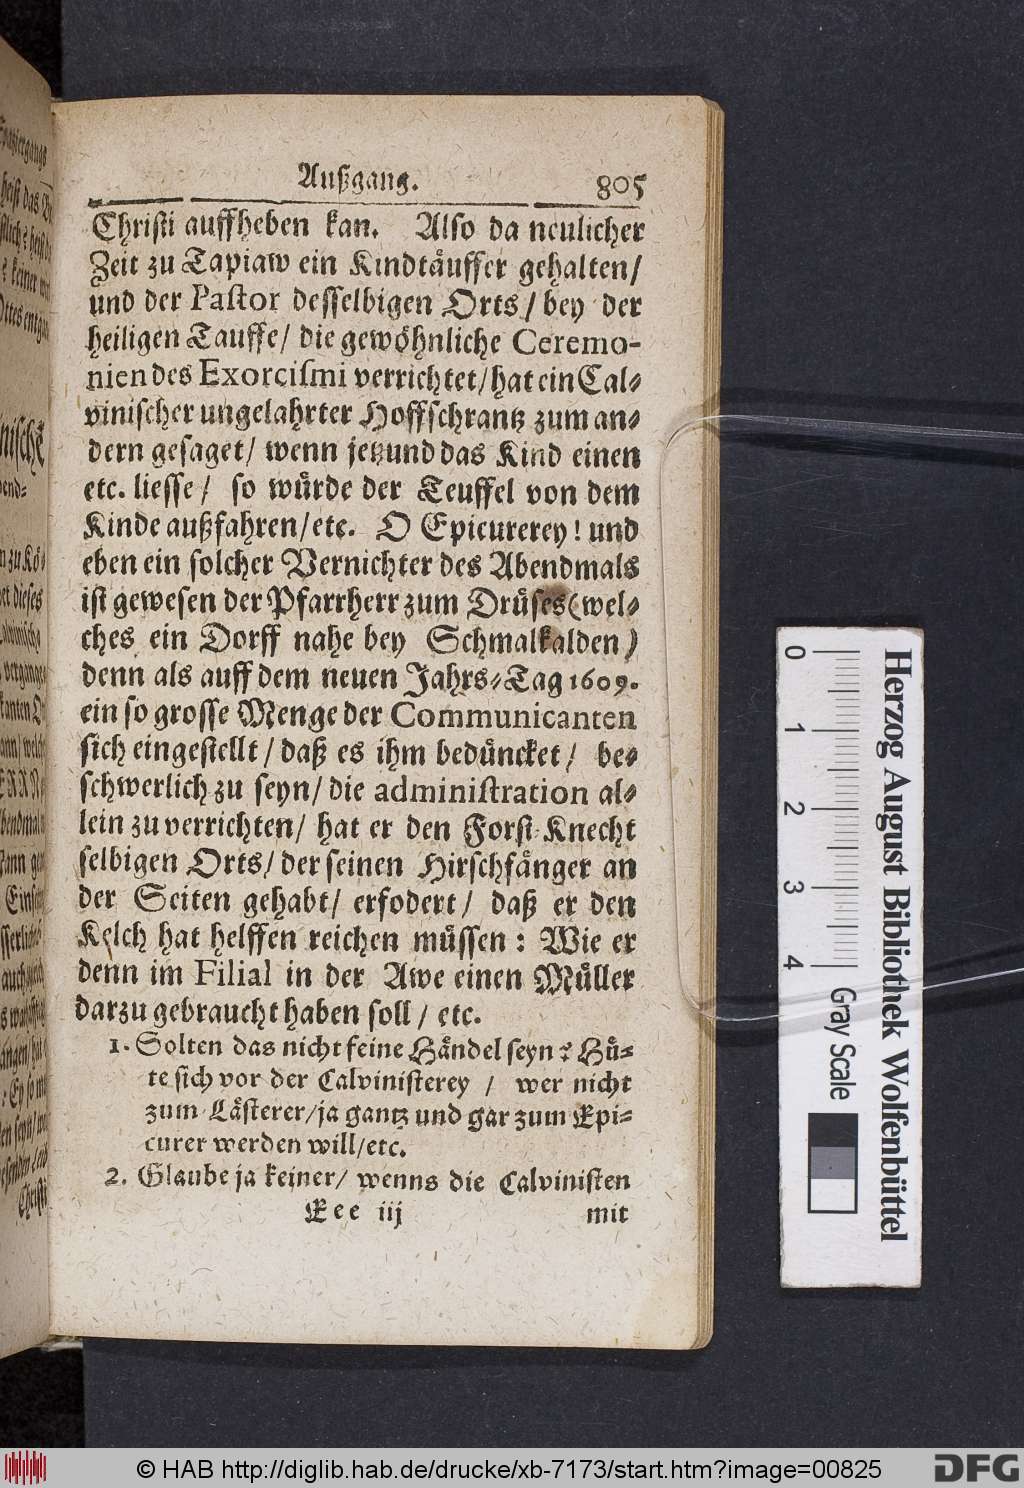 Außgang. 805
Christi auffheben kan. Also da neulicher
Zeit zu Tapiaw ein Kindtäuffer gehalten/
und der Pastor desselbigen Orts/ bey der
heiligen Tauffe/ die gewöhnliche Ceremo-
nien des Exorcismi verrichtet/ hat ein Cal-
vinischer ungelahrter Hoffschrantz zum an-
dern gesaget/ wenn jetzund das Kind einen
etc. liesse/ so würde der Teuffel von dem
Kinde außfahren/ etc. O Epicurerey! und
eben ein solcher Vernichter des Abendmals
ist gewesen der Pfarrherr zum Drüses (wel-
ches ein Dorff nahe bey Schmalkalden)
denn als auff dem neuen Jahrs-Tag 1609.
ein so grosse Menge der Communicanten
sich eingestellt/ daß es ihm bedüncket/ be-
schwerlich zu seyn/ die administration al-
lein zu verrichten/ hat er den Forst-Knecht
selbigen Orts/ der seinen Hirschfänger an
der Seiten gehabt/ erfodert/ daß er den
Kelch hat helffen reichen müssen: Wie er
denn im Filial in der Awe einen Müller
darzu gebraucht haben soll/ etc.
1. Solten das nicht feine Händel seyn? Hü-
te sich vor der Calvinisterey/ wer nicht
zum Lästerer/ ja gantz und gar zum Epi-
curer werden will/ etc.
2. Glaube ja keiner/ wenns die Calvinisten
Eee iij mit
0 1 2 3 4
Gray Scale
Herzog August Bibliothek Wolfenbüttel
© HAB http://diglib.hab.de/drucke/xb-7173/start.htm?image=00825
DFG